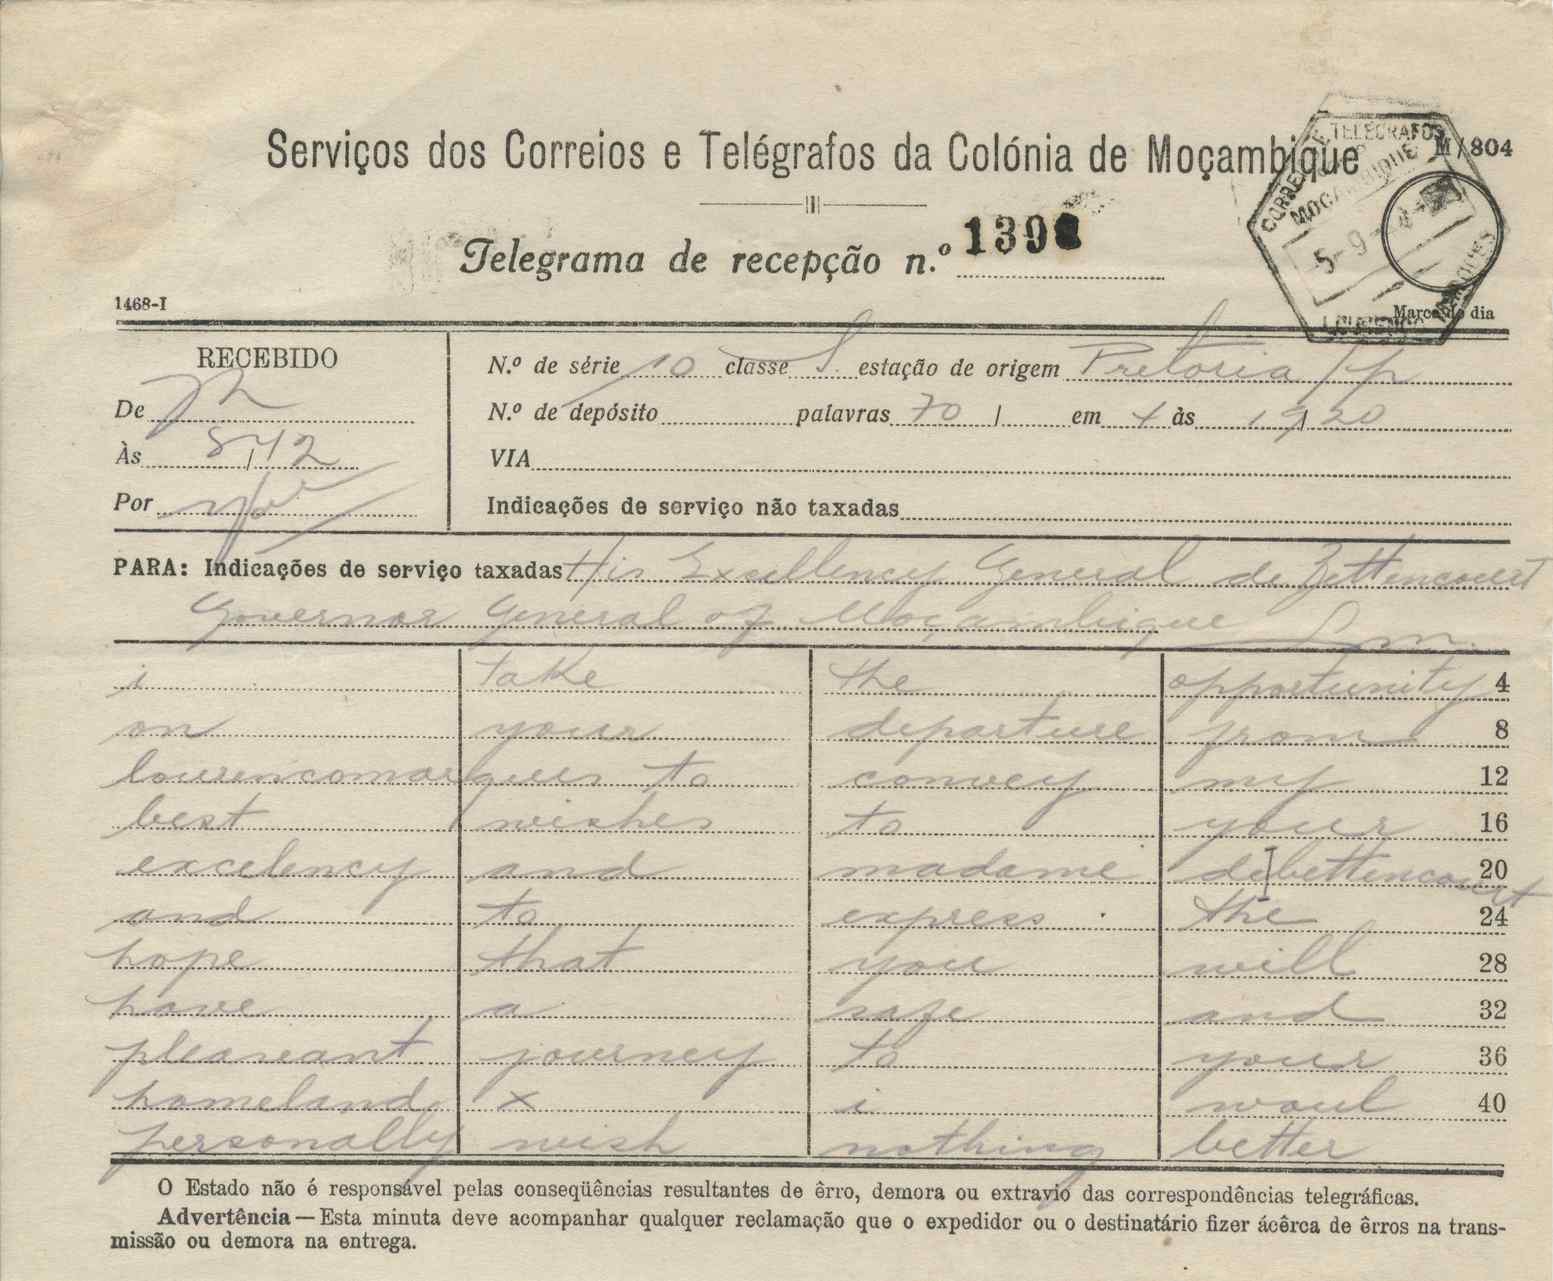 Serviços dos Correios e Telégrafos da Colónia de Moçambique
M/804
Telegrama de recepção n.º 139
CORREIOS E TELEGRAFOS
MOÇAMBIQUE
5-9-
LOURENÇO MARQUES
Marca do dia
1468-I
RECEBIDO
De
Às 8,42
Por
N.º de série 10 classe S estação de origem Pretoria
N.º de depósito palavras 70 / em 4 às 19,20
VIA
Indicações de serviço não taxadas
PARA: Indicações de serviço taxadas His Excellency General de Bettencourt
Governor General of Moçambique Lm
i take the opportunity 4
on your departure from 8
lourencomarques to convey my 12
best wishes to your 16
excelency and madame debettencourt 20
and to express the 24
hope that you will 28
have a safe and 32
pleaseant journey to your 36
homeland x i woul 40
personally wish nothing better
O Estado não é responsável pelas conseqüências resultantes de êrro, demora ou extravio das correspondências telegráficas.
Advertência — Esta minuta deve acompanhar qualquer reclamação que o expedidor ou o destinatário fizer ácêrca de êrros na trans-
missão ou demora na entrega.